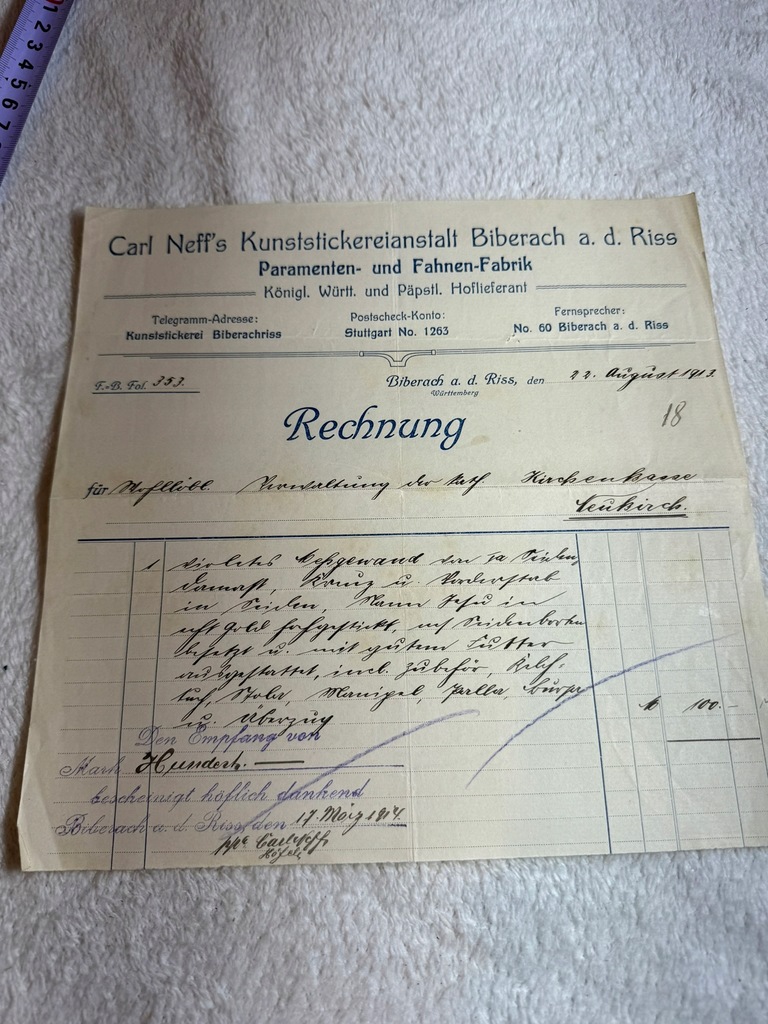 1 2 3 4 5 6 7
Carl Neff's Kunststickereianstalt Biberach a. d. Riss
Paramenten- und Fahnen-Fabrik
Königl. Württ. und Päpstl. Hoflieferant
Telegramm-Adresse: Postscheck-Konto: Fernsprecher:
Kunststickerei Biberachriss Stuttgart No. 1263 No. 60 Biberach a. d. Riss
F.-B. Fol. 353. Biberach a. d. Riss, den 22. August 1913.
Württemberg
18
Rechnung
für Wohllöbl. Verwaltung der kath. Kirchenkasse
Neukirch.
1 violetes Meßgewand von Ia Seiden-
damast, Kreuz u. Vorderstab
in Seiden, Name Jesu in
echt Gold hochgestickt, mit Seidenborten
besetzt u. mit gutem Futter
ausgestattet, incl. Zubehör, Kelch-
tuch, Stola, Manipel, Palla, Bursa
u. Überzug M 100.-
Den Empfang von
Mark Hundert.
bescheinigt höflich dankend
Biberach a. d. Riss, den 17. März 1914.
ppa Carl Neff